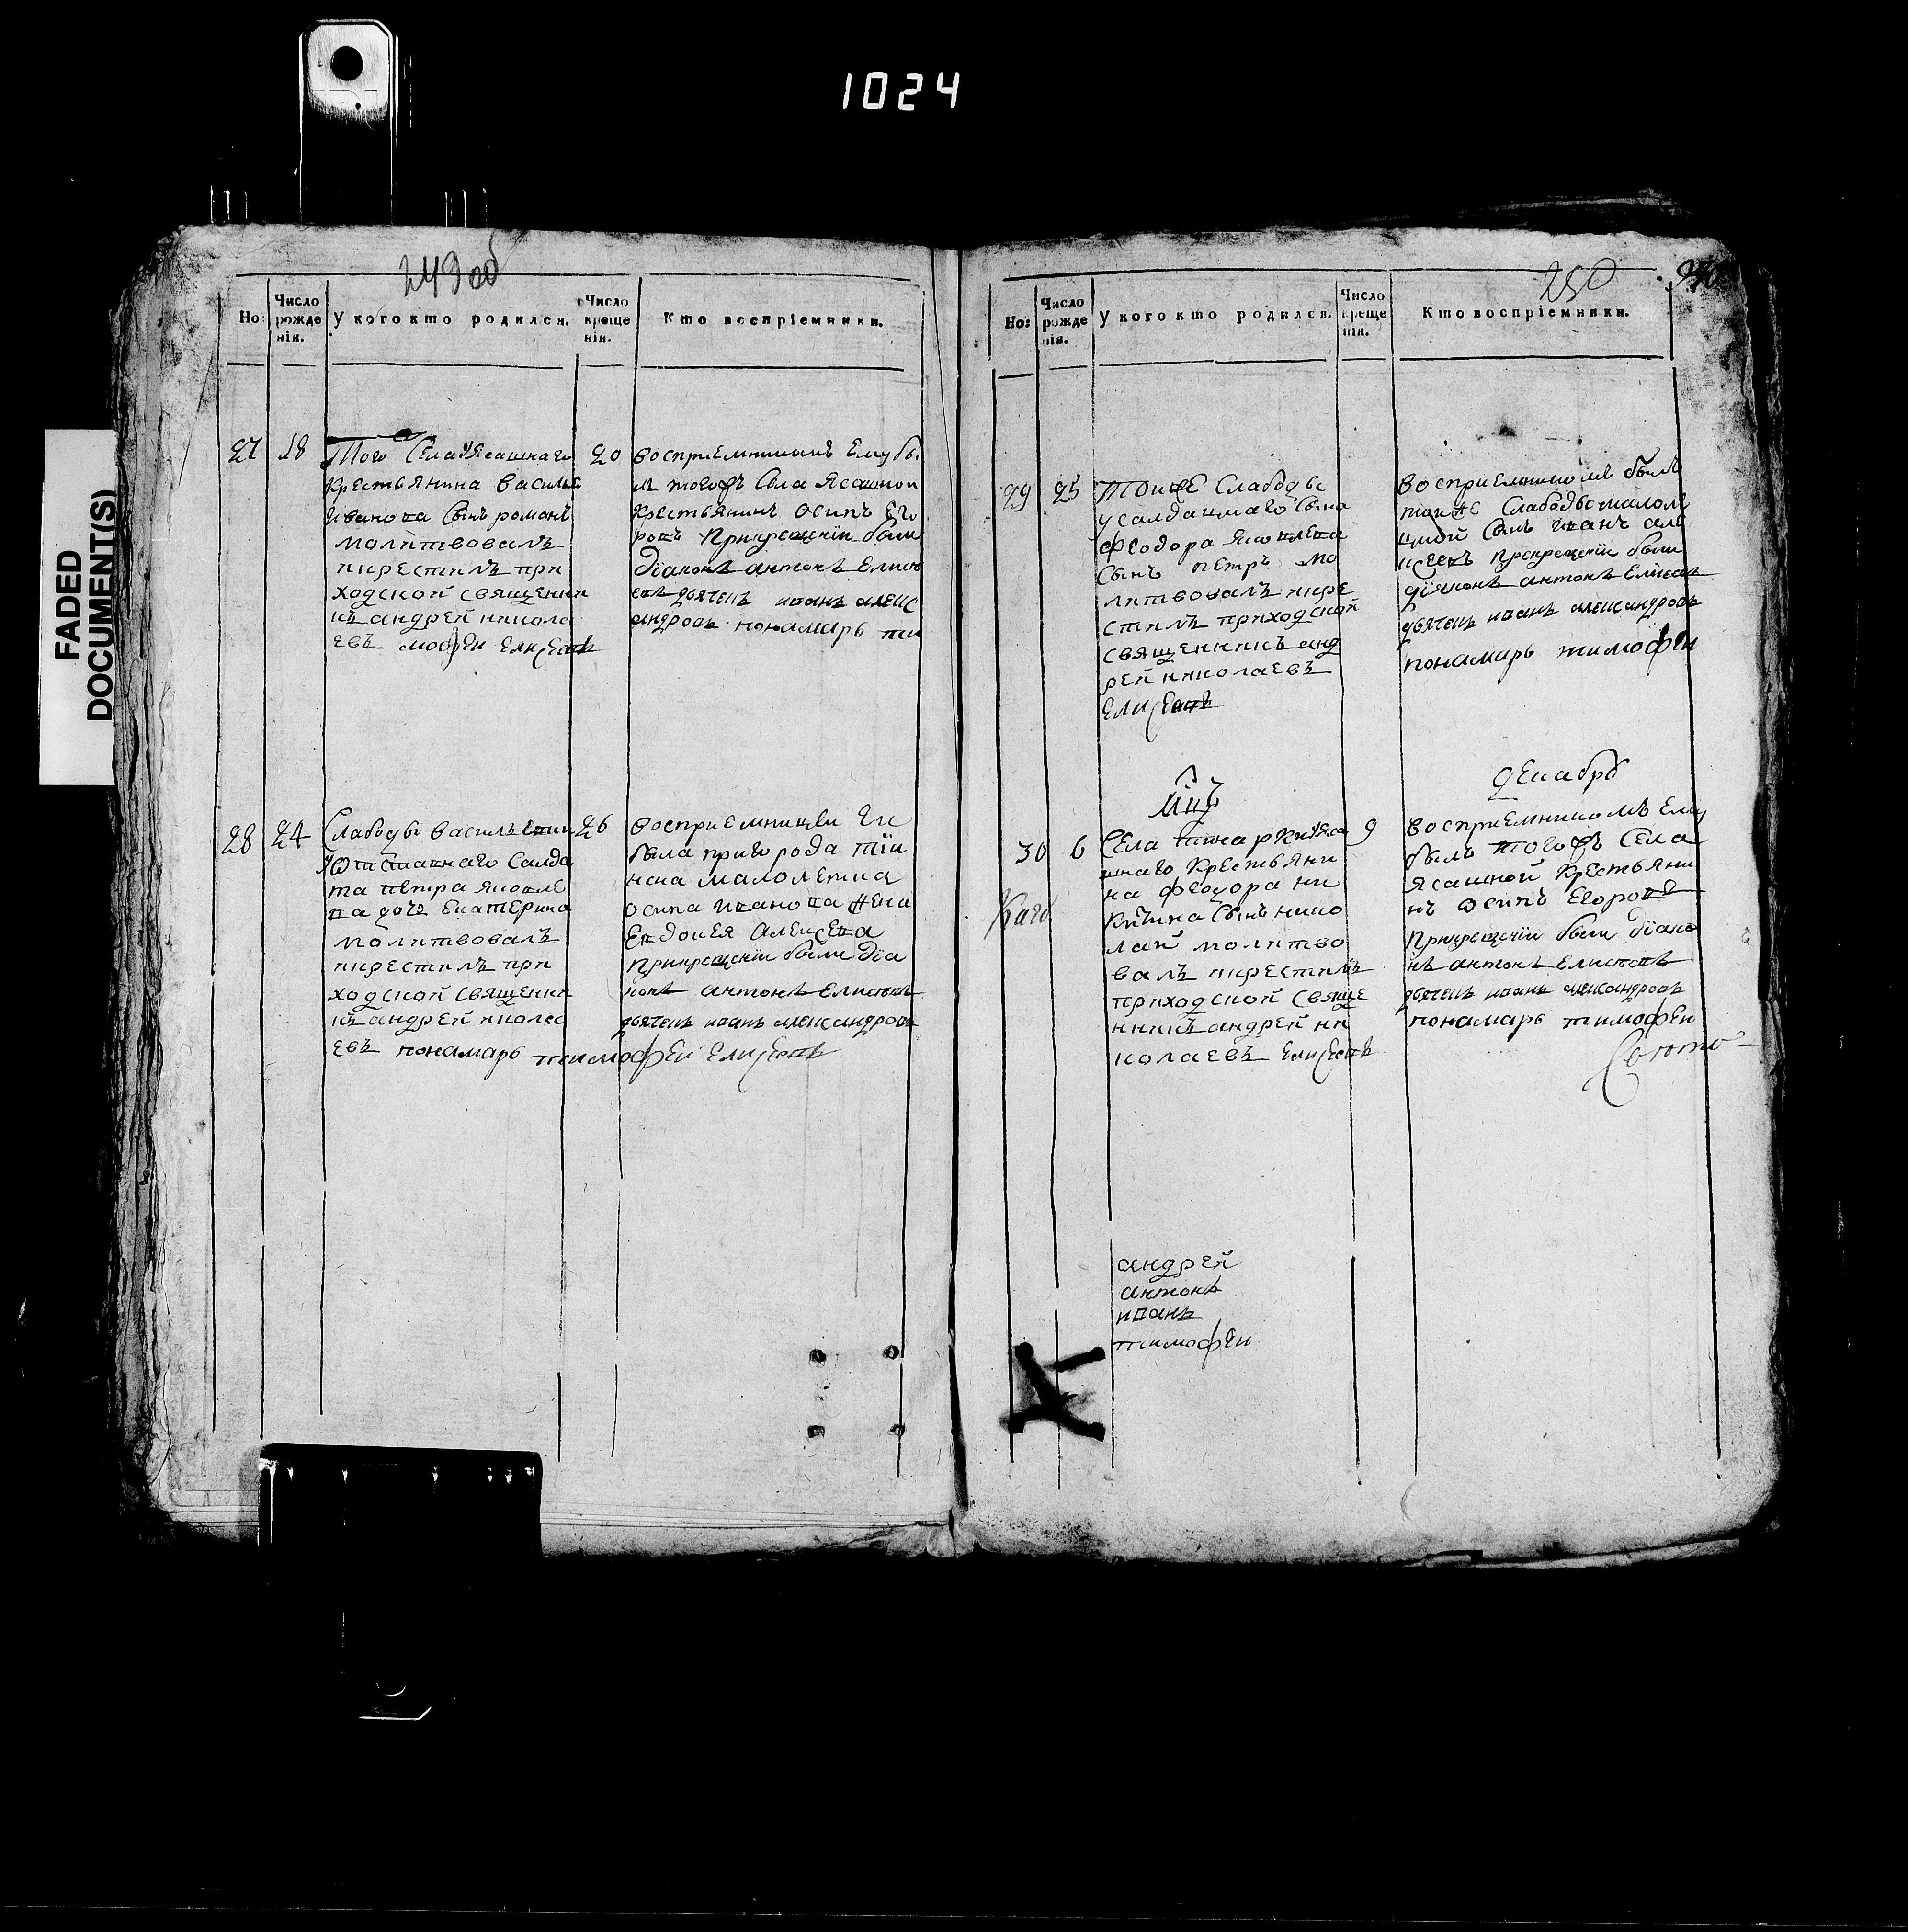 1024
FADED
DOCUMENT(S)
249 об
Но: Число рожде нія. У кого кто родился. Число креще нія. Кто воспріемники.
27 18 20
Того Села У Ясашнаго
крестьянина Василья
Иванова Сынъ романъ
молитвовалъ
икрестилъ при
ходской священни
къ андрей никола
евъ мофеи Елисеевъ
восприемникомъ Ему бы
лъ тогожъ Села Ясашной
крестьянинъ осипъ Его
ровъ Прикрещенїи были
дїаконъ антонъ Елисе
евъ дьячекъ иванъ алекс
андровъ понамарь ти
28 24 26
Слабоды василь
У Ѿставнаго Салда
та петра яковле
ва дочь Екатерина
молитвовалъ
икрестилъ при
ходской священни
къ андрей никола
евъ понамарь тимофеи Елисеевъ
восприемницеи Еи
была пригорода тїи
нска малолетка
осипа иванова жена
Евдокея Алексева
Прикрещенїи были дїа
конъ антонъ Елисеевъ
дьячекъ иванъ александровъ
250
Но: Число рожде нія. У кого кто родился. Число креще нія. Кто воспріемники.
29 25
Тоиже Слабоды
у салдацкаго Сына
феодора яковлева
Сынъ петръ мо
литвовалъ икре
стилъ приходской
священникъ анд
рей николаевъ
Елисеевъ
восприемникомъ былъ
тоиже Слабоды малоле
Сынъ иванъ але
ксеевъ Прикрещенїи были
дїяконъ антонъ Елисеевъ
дьячекъ иванъ александровъ
понамарь тимофеи
Мцъ декабрь
30 6 9
Села У Яса
шнаго крестьяни
на феодора ни
китина Сынъ нико
лай молитво
валъ икрестилъ
приходской свяще
нникъ андрей ни
колаевъ Елисеевъ
восприемникомъ Ему
былъ тогожъ Села
ясашной крестьяни
нъ осипъ Егоровъ
Прикрещенїи были дїако
нъ антонъ Елисеевъ
дьячекъ иванъ александровъ
понамарь тимофеи
андрей
антонъ
иванъ
тимофеи